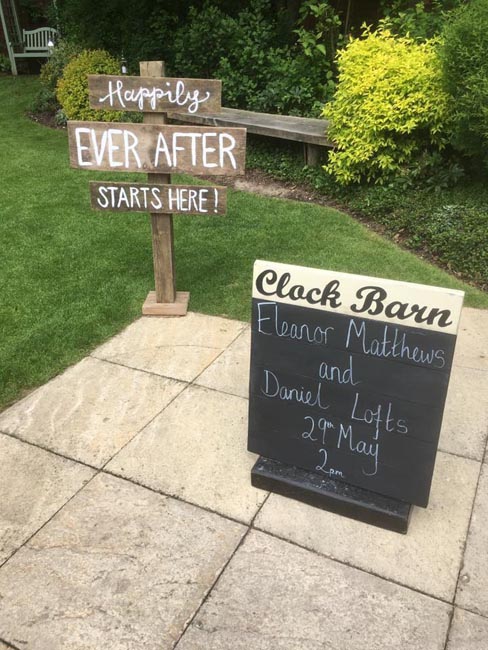 Happily
EVER AFTER
STARTS HERE!
Clock Barn
Eleanor Matthews
and
Daniel Lofts
29th May
2pm